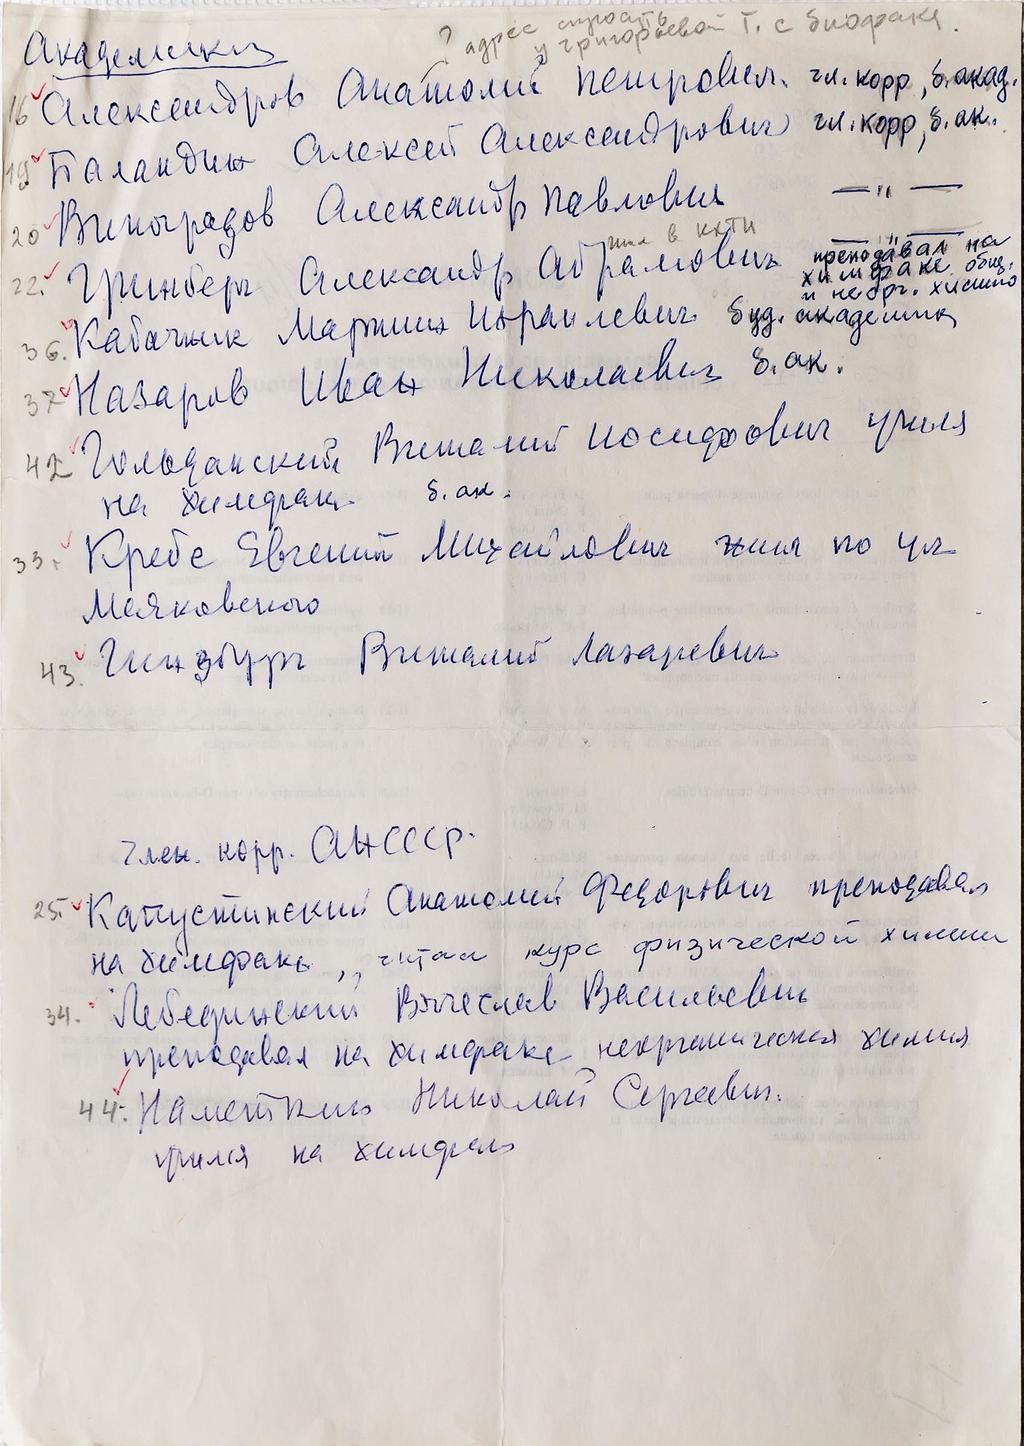 ? адрес спросить
у Григорьевой Т. с биофака.
Академики
16 Александров Анатолий Петрович. чл. корр, б. акад.
19. Баландин Алексей Александрович чл. корр, б. ак.
20 Виноградов Александр Павлович — " —
жил в КХТИ — " —
22. Гринберг Александр Абрамович преподавал на
химфаке общ.
и неорг. химию
36. Кабачник Мартин Израилевич буд. академик
37 Назаров Иван Николаевич б. ак.
42 Гольданский Виталий Иосифович учился
на химфаке б. ак.
33. Кребс Евгений Михайлович жил по ул
Маяковского
43. Гинзбург Виталий Лазаревич
Член. корр. АН СССР.
25. Капустинский Анатолий Федорович преподавал
на химфаке, читал курс физической химии
34. Лебединский Вячеслав Васильевич
преподавал на химфаке неорганическая химия
44. Наметкин Николай Сергеевич.
учился на химфаке